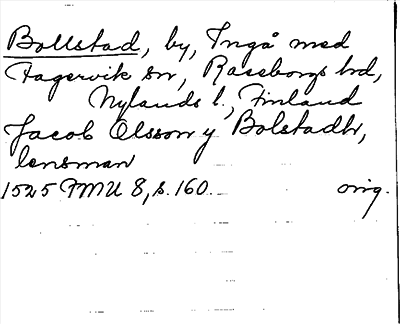 Bollstad, by, Ingå med
Fagervik sn, Raseborgs hd,
Nylands l., Finland
Jacob Olsson y Bolstadh,
lensman
1525 FMU 8, s. 160. orig.